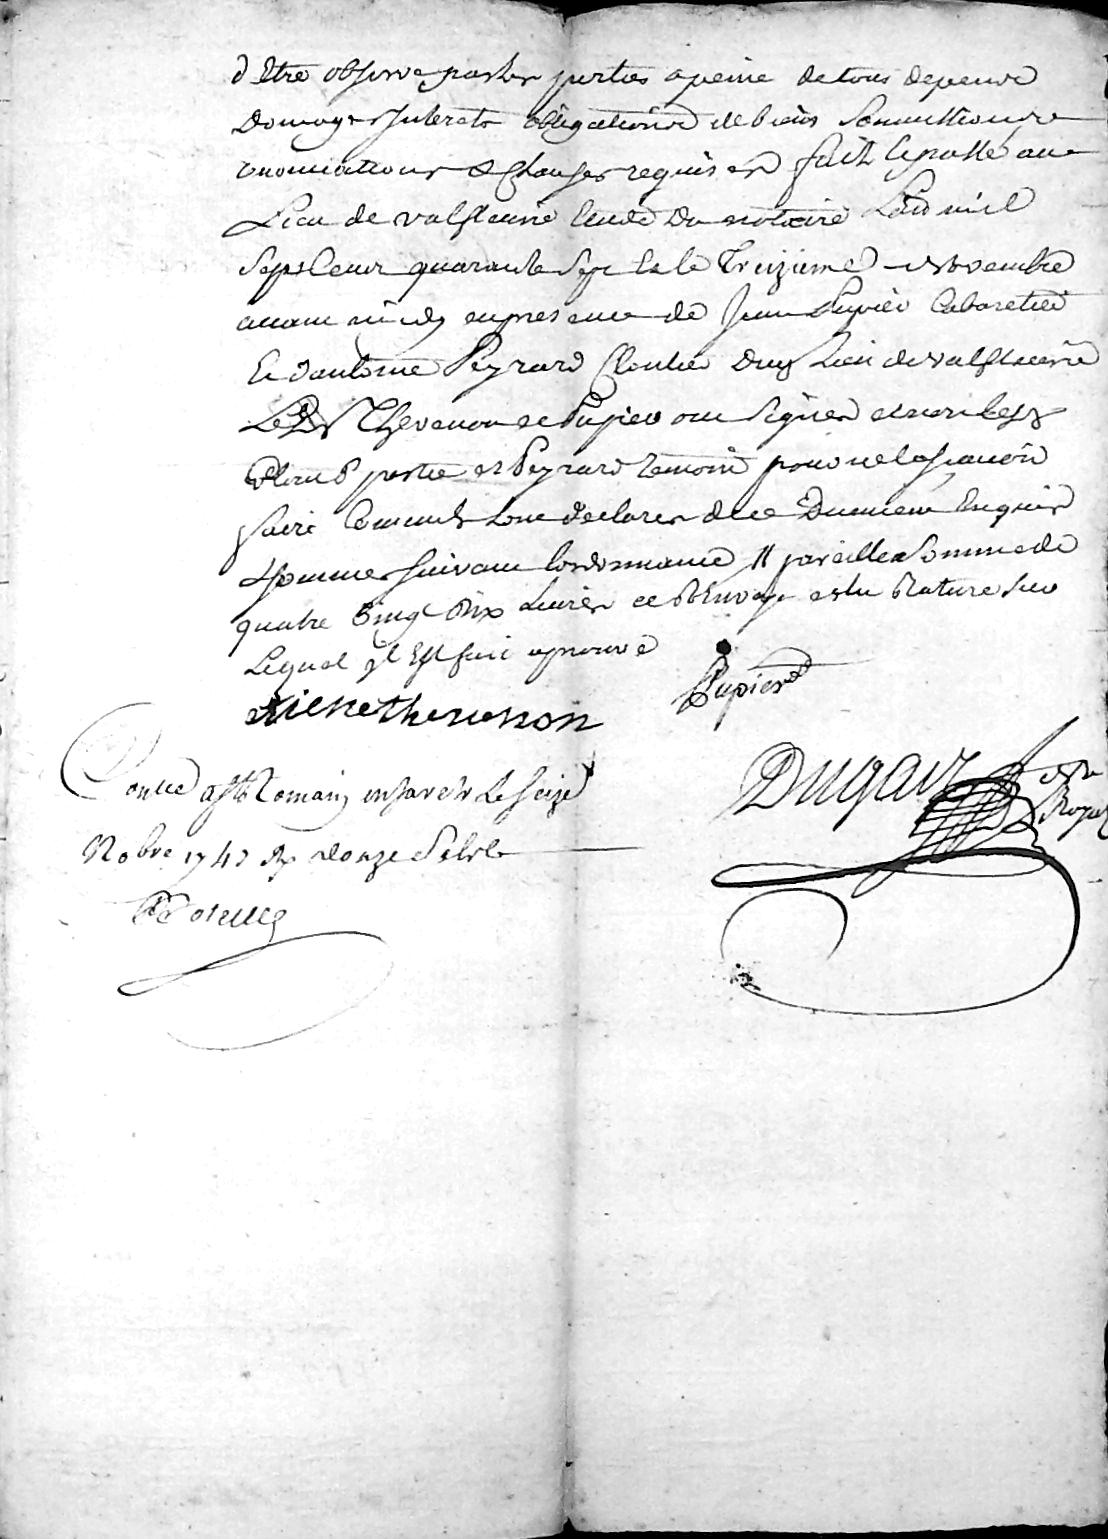 d'Etre observe par les parties a peine de tous depens
Domages Interets obligations de biens soumissions
renonciations & clauses requises fait & passé au
Lieu de valfleurie Etude Du notaire L'an mil
sept Cent quarante sept & le Treizieme novembre
avant midy en presence de Jean Pupier Cabaretier
Et d'antoine Peyrard Cloutier Duy Lieu de valfleurie
Thevenon et Pupier ont signés et non
partie et Peyrard Temoins pour ne le scavoir
faire Comme ont declarés de ce Duement Enquis
& sommes suivant l'ordonnance // pareille somme de
quatre vingt Dix Livres ce Renvoye est de Nature sur
Lequel il Est fait aprouvé
thevenon
Pupier
Dugair
nore
Royal
Contle a St Romain en Jarest Le seize
Nobre 1747 Rx douze sols